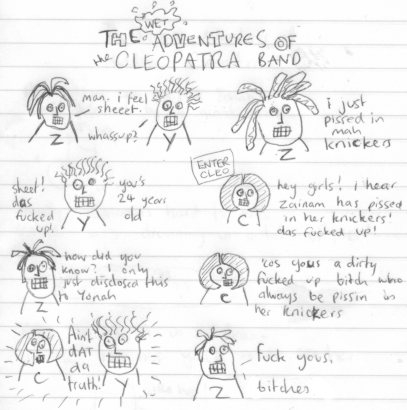 WET
THE ADVENTURES OF
the CLEOPATRA BAND
man. i feel
sheeet.
whassup?
Z
Y
i just
pissed in
mah
knickers
Z
sheet!
das
fucked
up!
you's
24 years
old
Y
ENTER
CLEO
hey girls! i hear
Zainam has pissed
in her knickers!
das fucked up!
C
how did you
know? I only
just disclosed this
to Yonah
Z
'cos yous a dirty
fucked up bitch who
always be pissin in
her knickers
C
Ain't
dat
da
truth!
C
Y
fuck yous.
bitches
Z